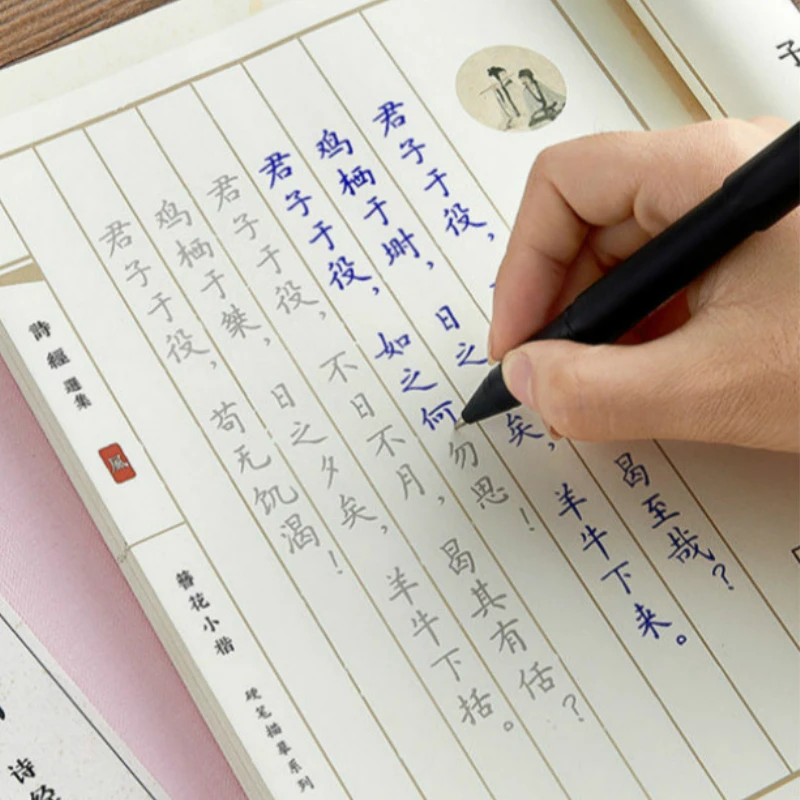 子
君子于役，
曷至哉？
鸡栖于埘，日之
矣，羊牛下来。
君子于役，如之何勿思！
君子于役，不日不月，曷其有佸？
鸡栖于桀，日之夕矣，羊牛下括。
君子于役，苟无饥渴！
詩經選集
風
簪花小楷
硬笔描摹系列
诗经